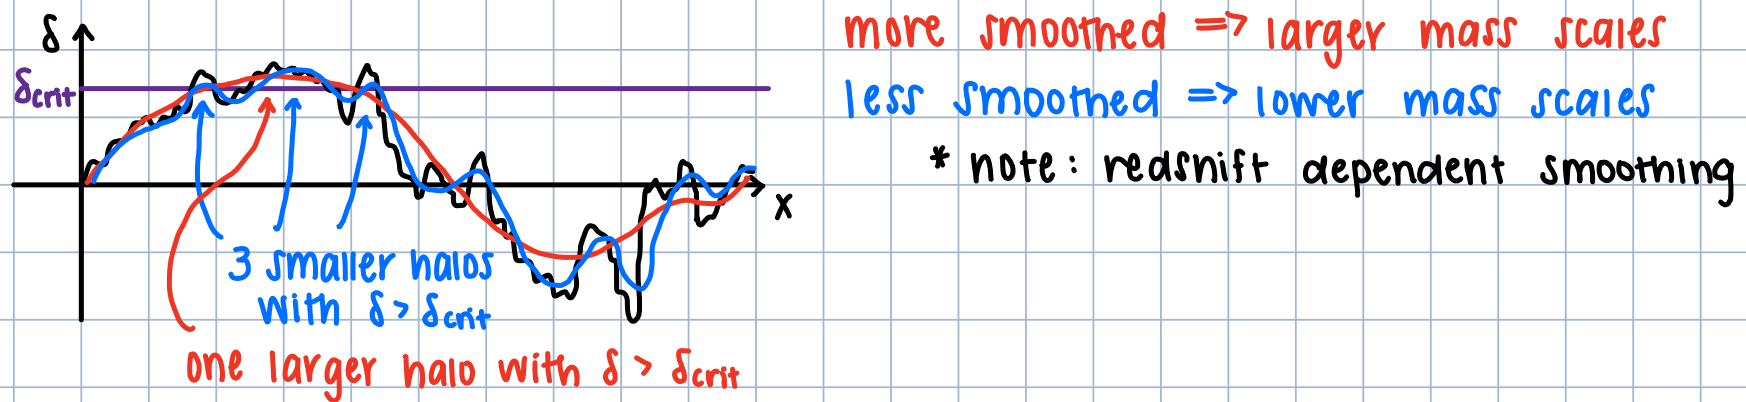 δ
δcrit
x
3 smaller halos
with δ > δcrit
one larger halo with δ > δcrit
more smoothed => larger mass scales
less smoothed => lower mass scales
* note: redshift dependent smoothing